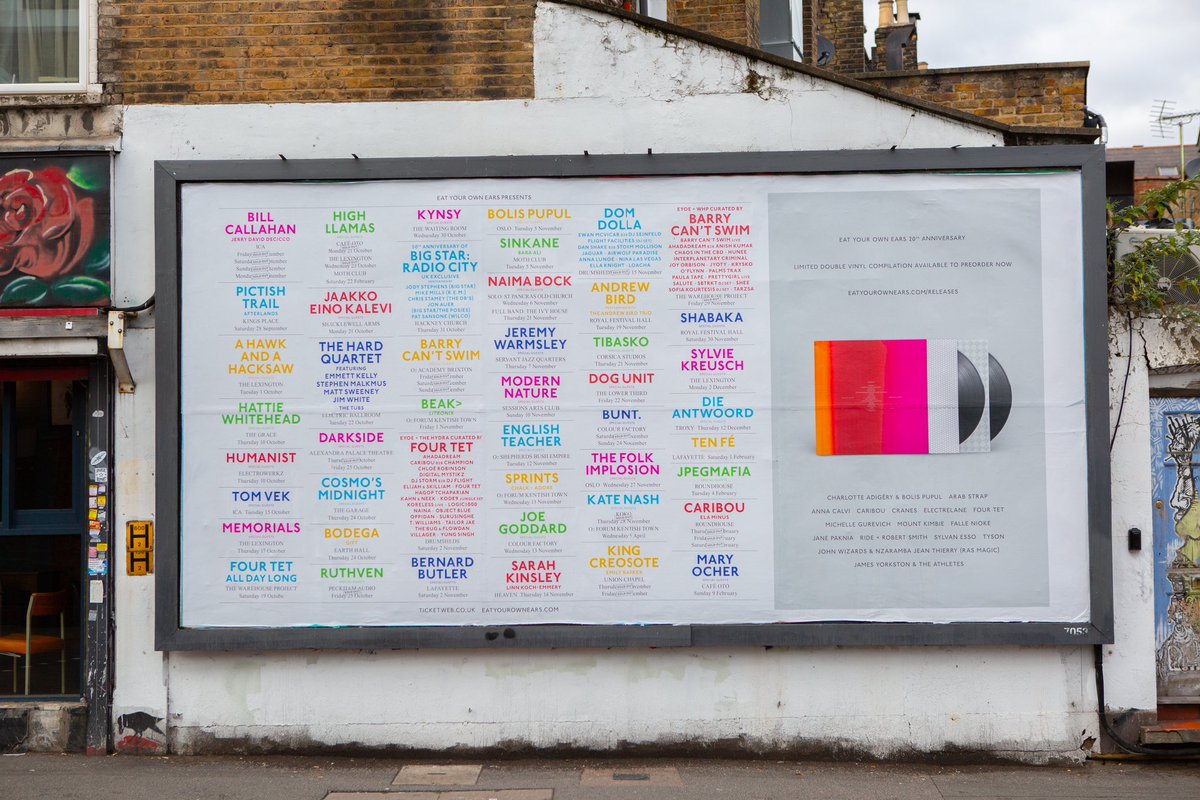 EAT YOUR OWN EARS PRESENTS
BILL
CALLAHAN
JERRY DAVID DECICCO
ICA
PICTISH
TRAIL
AFTERLANDS
KINGS PLACE
Saturday 28 September
A HAWK
AND A
HACKSAW
THE LEXINGTON
Tuesday 1 October
HATTIE
WHITEHEAD
THE GRACE
Thursday 10 October
HUMANIST
ELECTROWERKZ
Thursday 10 October
TOM VEK
ICA Tuesday 15 October
MEMORIALS
THE LEXINGTON
Thursday 17 October
FOUR TET
ALL DAY LONG
THE WAREHOUSE PROJECT
Saturday 19 October
HIGH
LLAMAS
CAFÉ OTO
Monday 21 October
THE LEXINGTON
MOTH CLUB
Saturday 22 February
JAAKKO
EINO KALEVI
SHACKLEWELL ARMS
Monday 21 October
THE HARD
QUARTET
FEATURING
EMMETT KELLY
STEPHEN MALKMUS
MATT SWEENEY
JIM WHITE
THE TUBS
ELECTRIC BALLROOM
Tuesday 22 October
DARKSIDE
ALEXANDRA PALACE THEATRE
COSMO'S
MIDNIGHT
THE GARAGE
Thursday 24 October
BODEGA
EARTH HALL
Thursday 24 October
RUTHVEN
PECKHAM AUDIO
KYNSY
THE WAITING ROOM
Wednesday 30 October
50TH ANNIVERSARY OF
BIG STAR:
RADIO CITY
UK EXCLUSIVE
JODY STEPHENS (BIG STAR)
MIKE MILLS (R.E.M.)
CHRIS STAMEY (THE DB'S)
JON AUER
(BIG STAR/THE POSIES)
PAT SANSONE (WILCO)
HACKNEY CHURCH
Thursday 31 October
BARRY
CAN'T SWIM
O2 ACADEMY BRIXTON
BEAK>
O2 FORUM KENTISH TOWN
Friday 1 November
EYOE + THE HYDRA CURATED BY
FOUR TET
AHADADREAM
CARIBOU B2B CHAMPION
CHLOÉ ROBINSON
DIGITAL MYSTIKZ
DJ STORM B2B DJ FLIGHT
ELIJAH & SKILLIAM · FOUR TET
HAGOP TCHAPARIAN
KORELESS LIVE · LOGIC1000
NAINA · OBJECT BLUE
OPPIDAN · SUROSINGHE
T. WILLIAMS · TAILOR JAE
THE BUG & FLOWDAN
VILLAGER · YUNG SINGH
DRUMSHEDS
Saturday 2 November
BERNARD
BUTLER
LAFAYETTE
Saturday 2 November
BOLIS PUPUL
OSLO Tuesday 5 November
SINKANE
MOTH CLUB
Tuesday 5 November
NAIMA BOCK
SOLO: ST PANCRAS OLD CHURCH
Wednesday 6 November
FULL BAND: THE IVY HOUSE
JEREMY
WARMSLEY
SERVANT JAZZ QUARTERS
Thursday 7 November
MODERN
NATURE
SESSIONS ARTS CLUB
Sunday 10 November
ENGLISH
TEACHER
O2 SHEPHERDS BUSH EMPIRE
Tuesday 12 November
SPRINTS
O2 FORUM KENTISH TOWN
Wednesday 13 November
JOE
GODDARD
COLOUR FACTORY
Wednesday 13 November
SARAH
KINSLEY
LINN KOCH-EMMERY
HEAVEN Thursday 14 November
DOM
DOLLA
EWAN MCVICAR B2B DJ SEINFELD
FLIGHT FACILITIES (DJ SET)
DAN SHAKE B2B STORM MOLLISON
JAGUAR · AIRWOLF PARADISE
ANNA LUNOE · NINA LAS VEGAS
ELLA KNIGHT · LOACHA
ANDREW
BIRD
ROYAL FESTIVAL HALL
Tuesday 19 November
TIBASKO
CORSICA STUDIOS
Thursday 21 November
DOG UNIT
THE LOWER THIRD
Friday 22 November
BUNT.
COLOUR FACTORY
Sunday 24 November
THE FOLK
IMPLOSION
OSLO Wednesday 27 November
KATE NASH
KOKO
Thursday 28 November
O2 FORUM KENTISH TOWN
KING
CREOSOTE
UNION CHAPEL
EYOE + WHP CURATED BY
BARRY
CAN'T SWIM
BARRY CAN'T SWIM LIVE
AHADADREAM B2B ANISH KUMAR
CHAOS IN THE CBD · HUNEE
INTERPLANETARY CRIMINAL
JOY ORBISON · JYOTY · KRYSKO
O'FLYNN · PALMS TRAX
PAULA TAPE · PRETTYGIRL LIVE
SALUTE · SBTRKT DJ SET · SHEE
SOFIA KOURTESIS DJ SET · TARZSA
THE WAREHOUSE PROJECT
Friday 29 November
SHABAKA
ROYAL FESTIVAL HALL
Saturday 30 November
SYLVIE
KREUSCH
THE LEXINGTON
Monday 2 December
DIE
ANTWOORD
TROXY Thursday 12 December
TEN FÉ
LAFAYETTE Saturday 1 February
JPEGMAFIA
ROUNDHOUSE
Tuesday 4 February
CARIBOU
ELA MINUS
ROUNDHOUSE
MARY
OCHER
CAFÉ OTO
Sunday 9 February
TICKETWEB.CO.UK EATYOUROWNEARS.COM
EAT YOUR OWN EARS 20TH ANNIVERSARY
LIMITED DOUBLE VINYL COMPILATION AVAILABLE TO PREORDER NOW
EATYOUROWNEARS.COM/RELEASES
CHARLOTTE ADIGÉRY & BOLIS PUPUL ARAB STRAP
ANNA CALVI CARIBOU CRANES ELECTRELANE FOUR TET
MICHELLE GUREVICH MOUNT KIMBIE FALLE NIOKE
JANE PAKNIA RIDE + ROBERT SMITH SYLVAN ESSO TYSON
JOHN WIZARDS & NZARAMBA JEAN THIERRY (RAS MAGIC)
JAMES YORKSTON & THE ATHLETES
7053